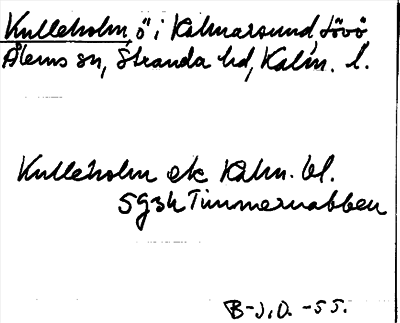 Kulleholm, ö i Kalmarsund, tövö
Ålems sn, Stranda hd, Kalm. l.
Kulleholm ek Kalm. bl.
5g3h Timmernabben
B-J.O. -55.